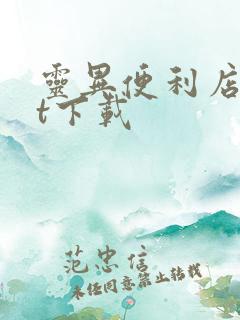 靈異便利店
t下載
范忠信
未任同意禁止轉載